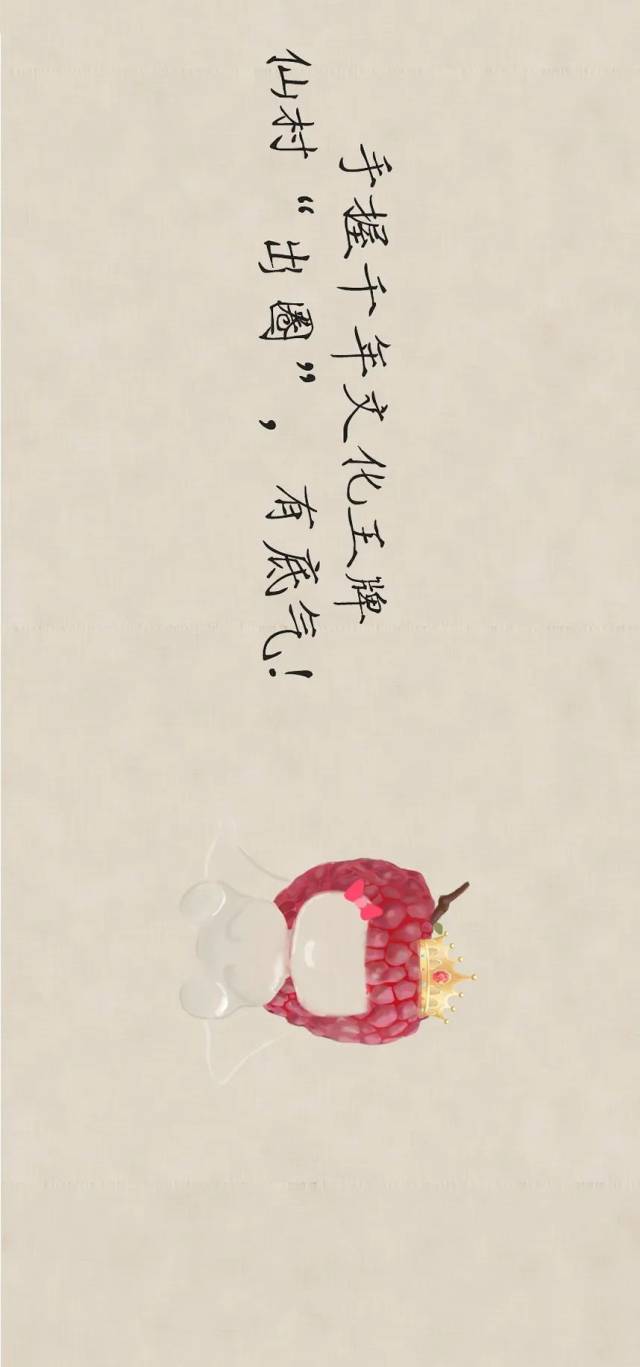 手握千年文化王牌
仙村“出圈”，有底气！